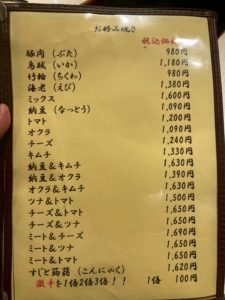 お好み焼き
税込価格
豚肉（ぶた） 980円
烏賊（いか） 1,180円
竹輪（ちくわ） 980円
海老（えび） 1,380円
ミックス 1,600円
納豆（なっとう） 1,090円
トマト 1,200円
オクラ 1,090円
チーズ 1,240円
キムチ 1,330円
納豆&キムチ 1,630円
納豆&オクラ 1,390円
オクラ&キムチ 1,630円
ツナ&トマト 1,500円
チーズ&トマト 1,650円
チーズ&ツナ 1,690円
ミート&チーズ 1,690円
ミート&ツナ 1,650円
ミート&トマト 1,650円
すじと蒟蒻（こんにゃく） 1,620円
激辛を1倍2倍3倍！！ 1倍 100円